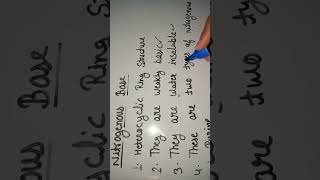 Nitrogenous Base
1. Heterocyclic Ring Structure
2. They are weakly basic
3. They are water insoluble
4. These are two types of nitrogenous
are two